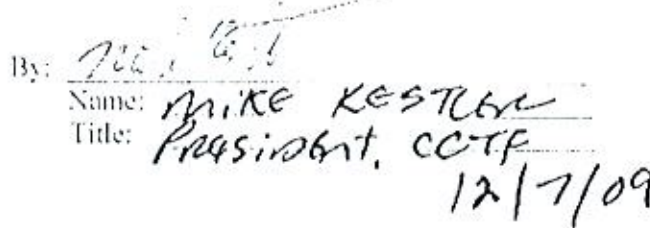 By:
Name: MIKE KESTLER
Title: President, CCTF
12/7/09